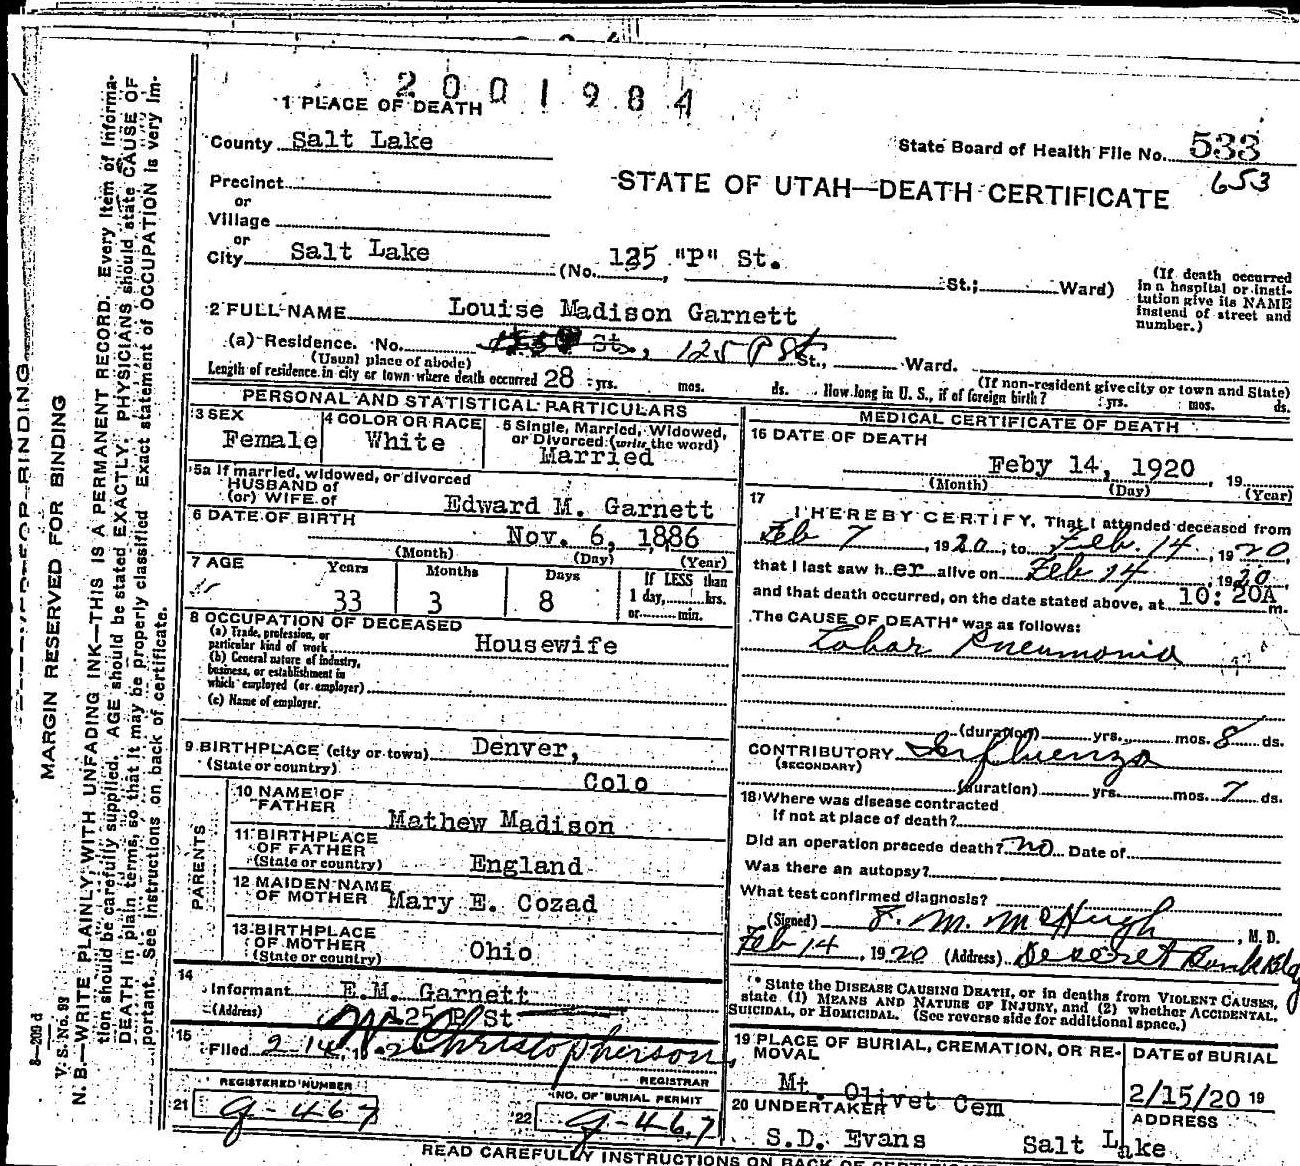 2001984
1 PLACE OF DEATH
County Salt Lake
State Board of Health File No. 533
653
Precinct
or
Village
or
City Salt Lake (No. 125 "P" St. St.; Ward)
STATE OF UTAH—DEATH CERTIFICATE
(If death occurred in a hospital or institution give its NAME instead of street and number.)
2 FULL NAME Louise Madison Garnett
(a) Residence. No. St., 125 P St St., Ward.
(Usual place of abode) (If non-resident give city or town and State)
Length of residence in city or town where death occurred 28 yrs. mos. ds. How long in U. S., if of foreign birth? yrs. mos. ds.
PERSONAL AND STATISTICAL PARTICULARS
3 SEX
Female
4 COLOR OR RACE
White
5 Single, Married, Widowed, or Divorced (write the word)
Married
5a If married, widowed, or divorced
HUSBAND of
(or) WIFE of Edward M. Garnett
6 DATE OF BIRTH Nov. 6, 1886
(Month) (Day) (Year)
7 AGE Years Months Days If LESS than
33 3 8 1 day, hrs.
or min.
8 OCCUPATION OF DECEASED
(a) Trade, profession, or
particular kind of work Housewife
(b) General nature of industry,
business, or establishment in
which employed (or employer)
(c) Name of employer.
9 BIRTHPLACE (city or town) Denver,
(State or country) Colo
PARENTS
10 NAME OF
FATHER Mathew Madison
11 BIRTHPLACE
OF FATHER
(State or country) England
12 MAIDEN NAME
OF MOTHER Mary E. Cozad
13 BIRTHPLACE
OF MOTHER
(State or country) Ohio
14
Informant E.M. Garnett
(Address) 125 P St
15
Filed 2 14, 19 20 W Christopherson,
REGISTRAR
REGISTERED NUMBER
21 g-467
NO. OF BURIAL PERMIT
22 g-467
MEDICAL CERTIFICATE OF DEATH
16 DATE OF DEATH
Feby 14, 1920, 19
(Month) (Day) (Year)
17
I HEREBY CERTIFY, That I attended deceased from
Feb 7, 1920, to Feb. 14, 1920,
that I last saw her alive on Feb 14, 1920,
and that death occurred, on the date stated above, at 10:20A m.
The CAUSE OF DEATH* was as follows:
Lobar Pneumonia
(duration) yrs. mos. 8 ds.
CONTRIBUTORY Influenza
(SECONDARY)
(duration) yrs. mos. 7 ds.
18 Where was disease contracted
if not at place of death?
Did an operation precede death? no Date of
Was there an autopsy?
What test confirmed diagnosis?
(Signed) F. M. McHugh, M. D.
Feb 14, 1920 (Address) Deseret Bank Bldg
* State the DISEASE CAUSING DEATH, or in deaths from VIOLENT CAUSES,
state (1) MEANS AND NATURE OF INJURY, and (2) whether ACCIDENTAL,
SUICIDAL, or HOMICIDAL. (See reverse side for additional space.)
19 PLACE OF BURIAL, CREMATION, OR REMOVAL
Mt. Olivet Cem
DATE of BURIAL
2/15/20 19
20 UNDERTAKER
S.D. Evans
ADDRESS
Salt Lake
READ CAREFULLY INSTRUCTIONS ON BACK OF
MARGIN RESERVED FOR BINDING
N. B.—WRITE PLAINLY, WITH UNFADING INK—THIS IS A PERMANENT RECORD. Every item of information
should be carefully supplied. AGE should be stated EXACTLY. PHYSICIANS should state CAUSE OF
DEATH in plain terms, so that it may be properly classified. Exact statement of OCCUPATION is very important.
See instructions on back of certificate.
8—209 d
V. S. No. 93